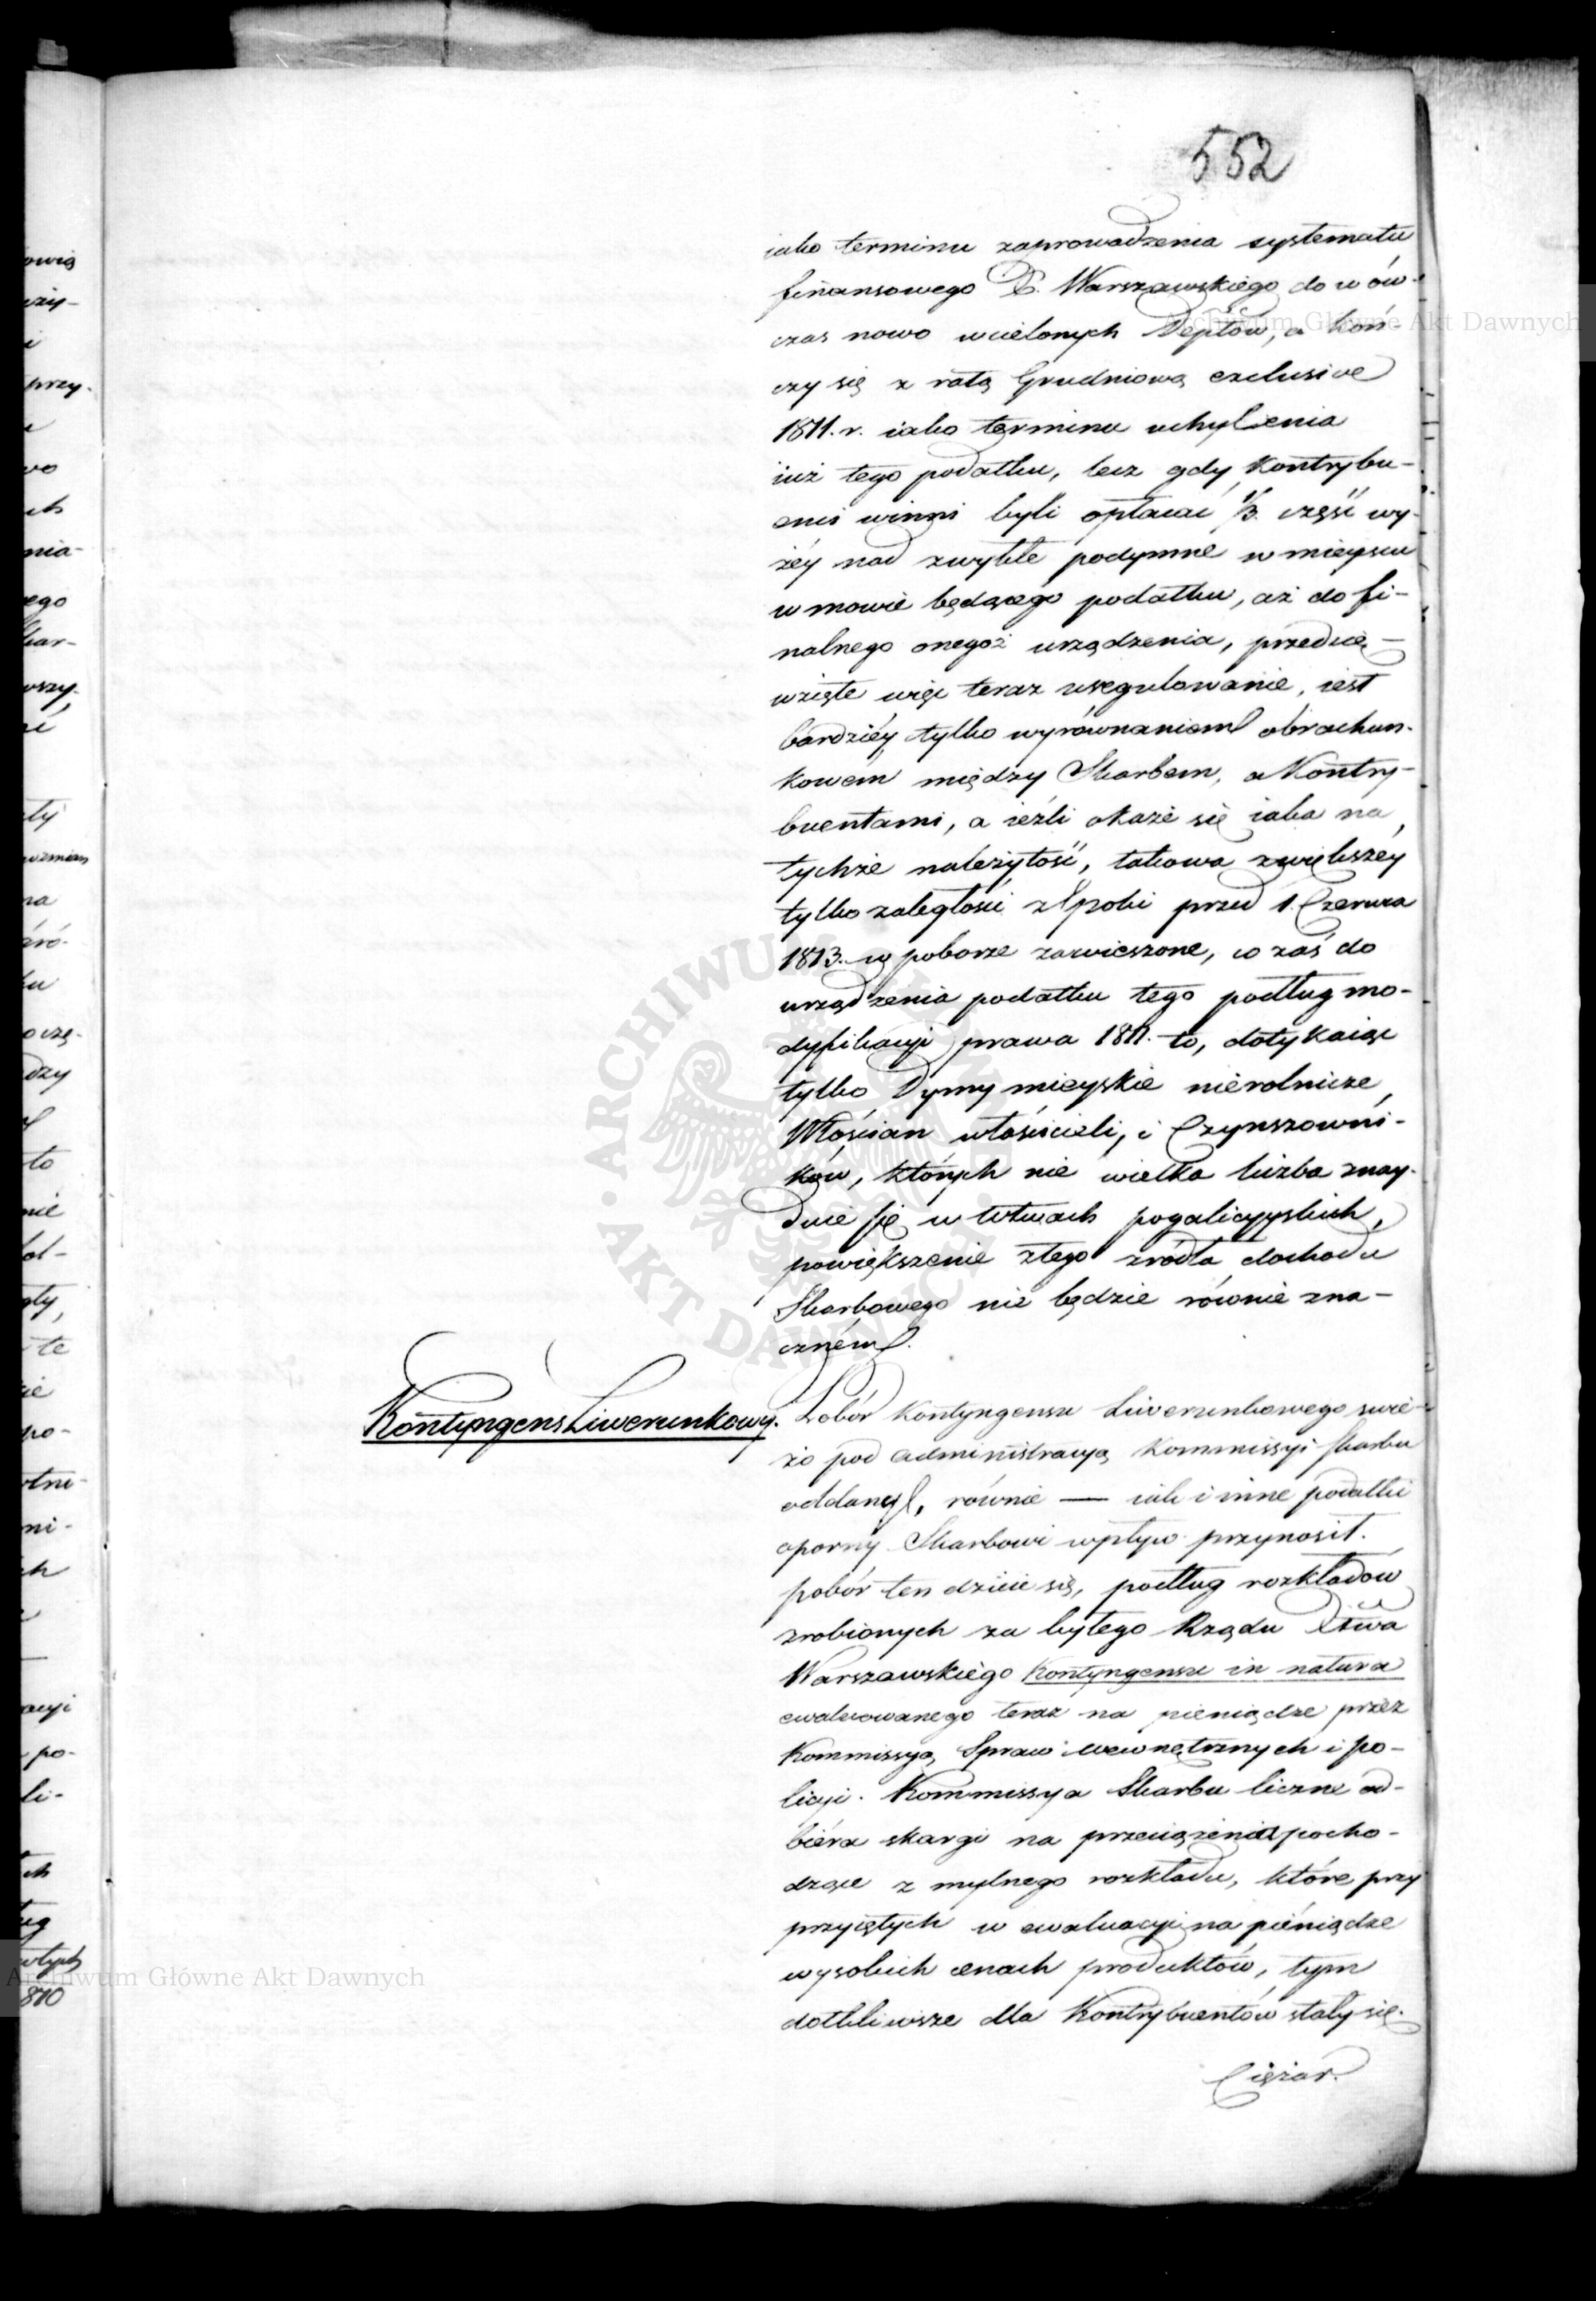 552
iako terminu zaprowadzenia systematu
finansowego X. Warszawskiego do w ów-
czas nowo wcielonych Deptów, a koń-
czy się z ratą Grudniową exclusive
1811. r. iako terminu uchylenia
iuż tego podatku, lecz gdy Kontrybu-
enci winni byli opłacać 1/3. część wy-
żéy nad zwykłe podymne w mieyscu
w mowie będącego podatku, aż do fi-
nalnego onegoż urządzenia, przedsię-
wzięte więc teraz uregulowanie, iest
bardziéy tylko wyrównaniem obrachun-
kowem między Skarbem, a Kontry-
buentami, a ieżli okaże się iaka na
tychże należytość, takowa zwiększéy
tylko zaległości z Epoki przed 1. Czerwca
1813. w poborze zawieszone, co zaś do
urządzenia podatku tego podług mo-
dyfikacyi prawa 1811. to, dotykaiąc
tylko Dymy mieyskie nierolnicze,
Włościan właścicieli, i Czynszowni-
ków, których nie wielka liczba znay-
duie się w Wtwach pogalicyyskich,
powiększenie z tego źródła dochodu
Skarbowego nie będzie równie zna-
czném.
Kontyngens Liwerunkowy.
Pobór Kontyngensu Liwerunkowego świe-
żo pod administracyą Kommissyi Skarbu
oddany, równie — iak i inne podatki
oporny Skarbowi wpływ przynosił.
pobór ten dzieie się, podług rozkładów
zrobionych za byłego Rządu Xtwa
Warszawskiego Kontyngensu in natura
ewaluowanego teraz na pieniądze przez
Kommissyą Spraw wewnętrznych i Po-
licyi. Kommissya Skarbu liczne od-
biéra skargi na przeciążenia pocho-
dzące z mylnego rozkładu, które przy
przyiętych w ewaluacyi na piéniądze
wysokich cenach produktów, tym
dotkliwsze dla Kontrybuentów stały się.
Ciężar.
Archiwum Główne Akt Dawnych
Archiwum Główne Akt Dawnych
ARCHIWUM GŁÓWNE · AKT DAWNYCH ·